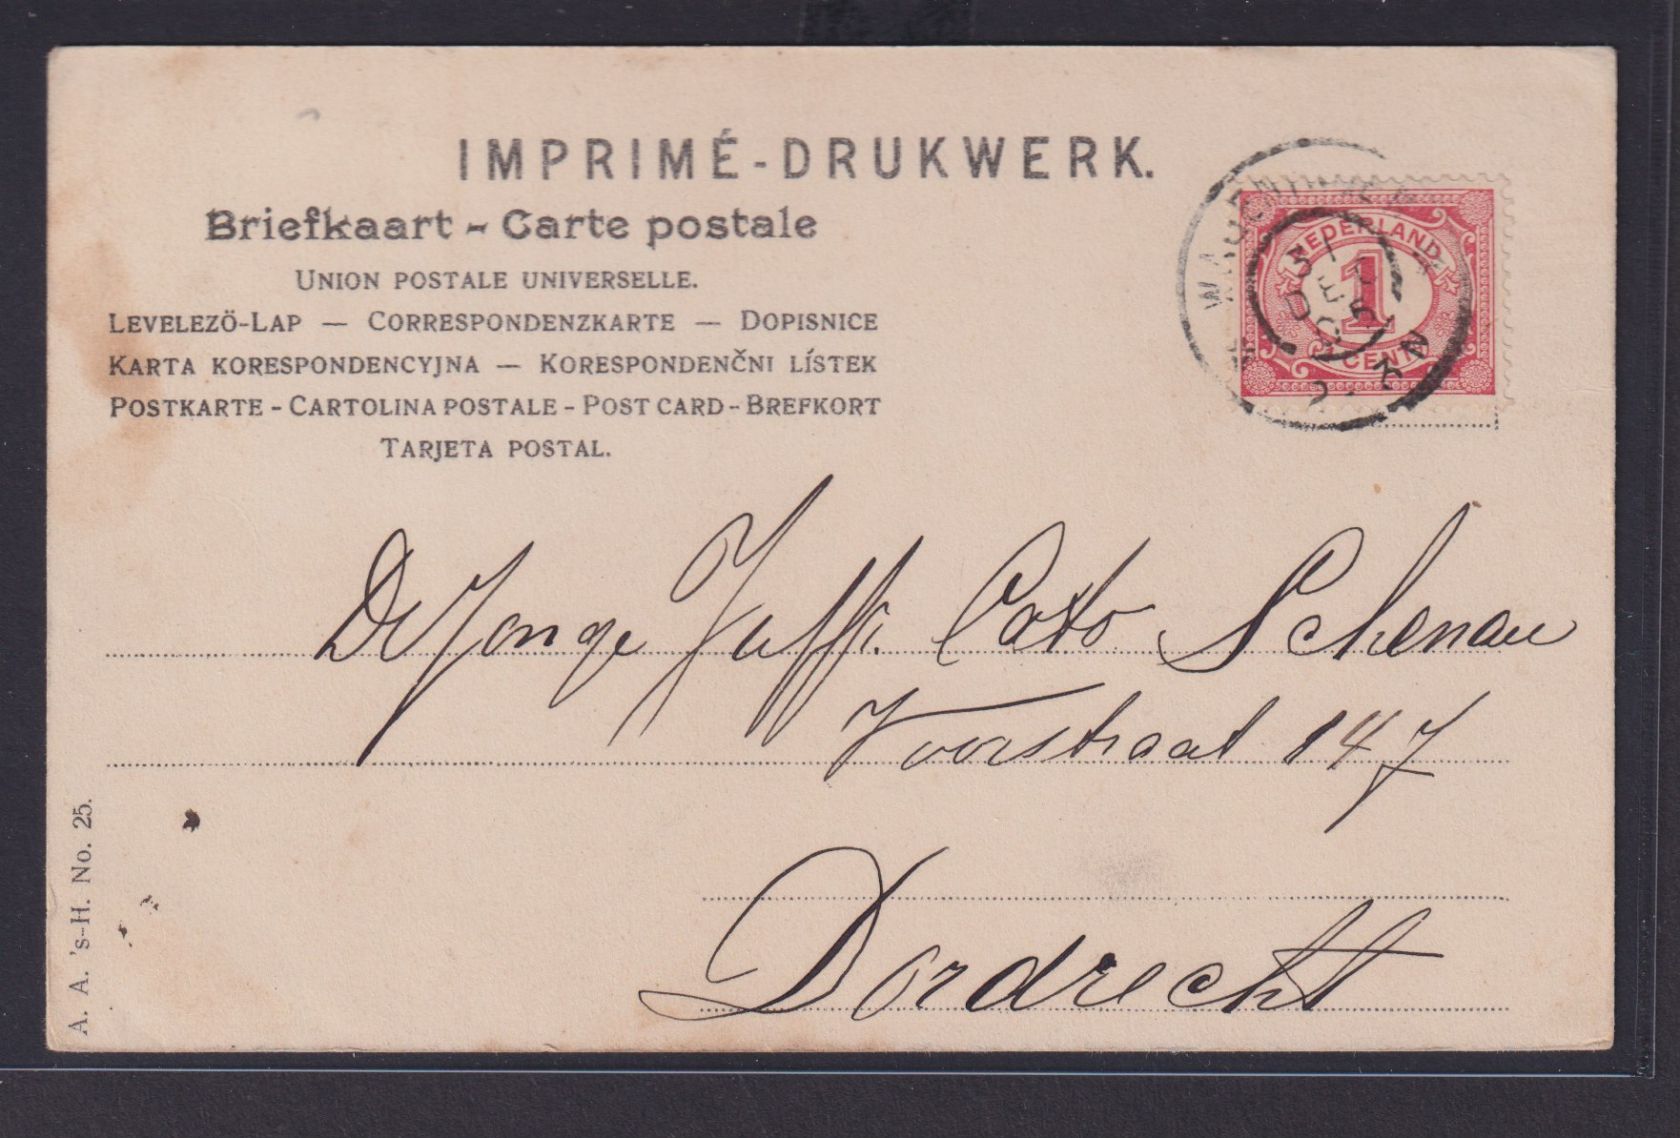 IMPRIMÉ-DRUKWERK.
Briefkaart - Carte postale
UNION POSTALE UNIVERSELLE.
LEVELEZÖ-LAP — CORRESPONDENZKARTE — DOPISNICE
KARTA KORESPONDENCYJNA — KORESPONDENČNI LÍSTEK
POSTKARTE - CARTOLINA POSTALE - POST CARD - BREFKORT
TARJETA POSTAL.
NEDERLAND
1
CENT
De Jonge Juffr. Cato Schenau
Voorstraat 147
Dordrecht
A. A. 's-H. No. 25.